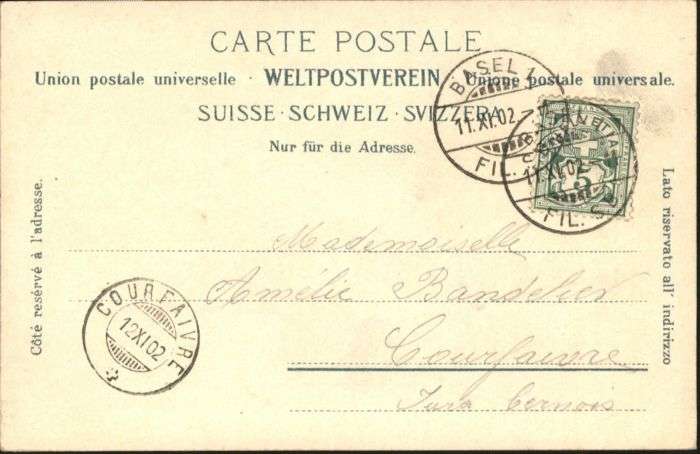 CARTE POSTALE
Union postale universelle · WELTPOSTVEREIN · Unione postale universale.
SUISSE · SCHWEIZ · SVIZZERA
Nur für die Adresse.
BASEL 1
11.XI.02.
FIL.
11.XI.02.
FIL. S
5
Côté reservé à l'adresse.
Lato riservato all' indirizzo
Mademoiselle
Amélie Bandelier
Courfaivre
Jura bernois
COURFAIVRE
12.XI.02